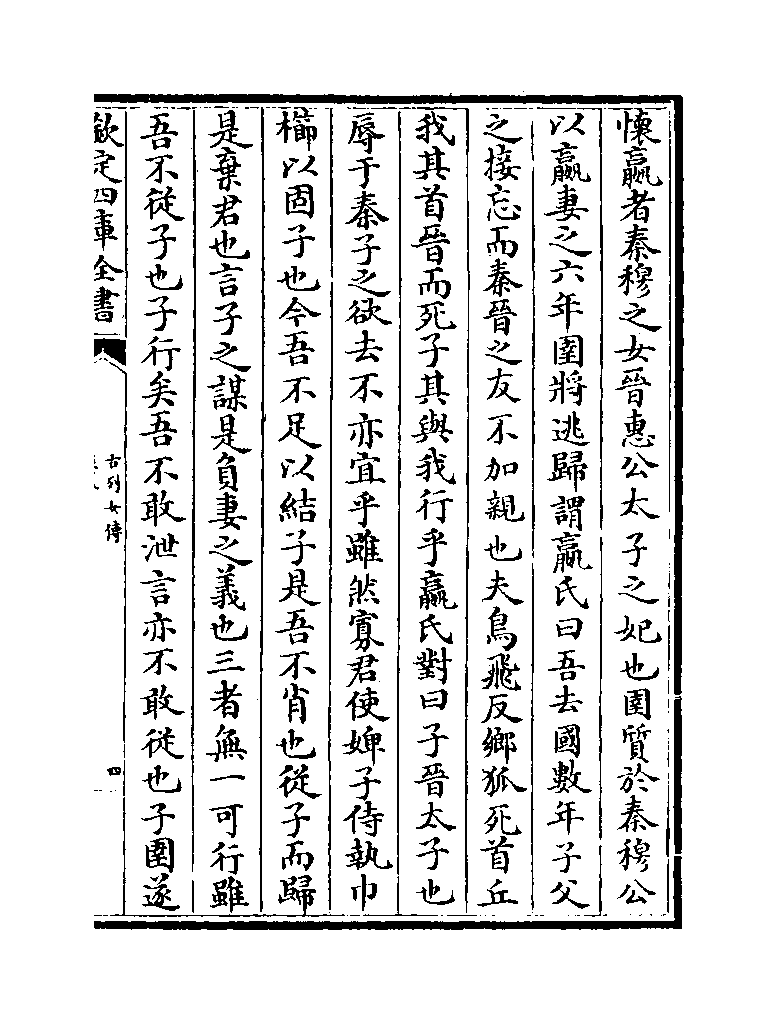 懷嬴者秦穆之女晉惠公太子之妃也圉質於秦穆公
以嬴妻之六年圉將逃歸謂嬴氏曰吾去國數年子父
之接忘而秦晉之友不加親也夫鳥飛反鄉狐死首丘
我其首晉而死子其與我行乎嬴氏對曰子晉太子也
辱于秦子之欲去不亦宜乎雖然寡君使婢子侍執巾
櫛以固子也今吾不足以結子是吾不肖也從子而歸
是棄君也言子之謀是負妻之義也三者無一可行雖
吾不從子也子行矣吾不敢泄言亦不敢從也子圉遂
欽定四庫全書
古列女傳
四